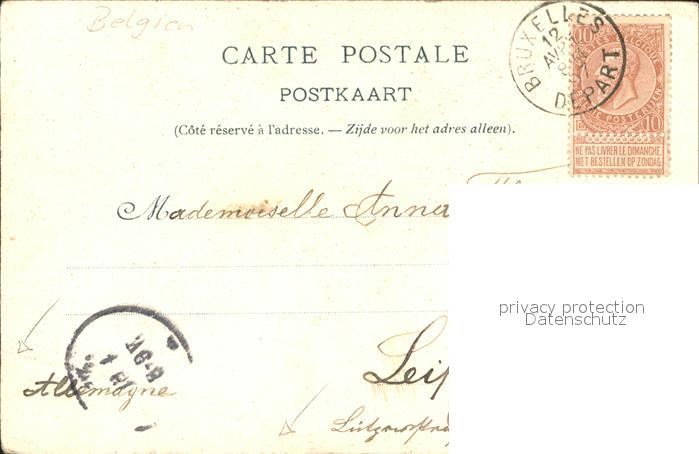 Belgien
CARTE POSTALE
POSTKAART
(Côté réservé à l'adresse. — Zijde voor het adres alleen).
BRUXELLES
12
AVR
DEPART
10
10
NE PAS LIVRER LE DIMANCHE
NIET BESTELLEN OP ZONDAG
Mademoiselle Anna
privacy protection
Datenschutz
Allemagne
Leip